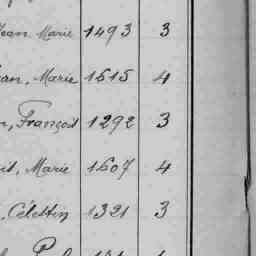 Jean Marie 1493 3
an, Marie 1615 4
n, François 1292 3
it, Marie 1607 4
, Célestin 1321 3